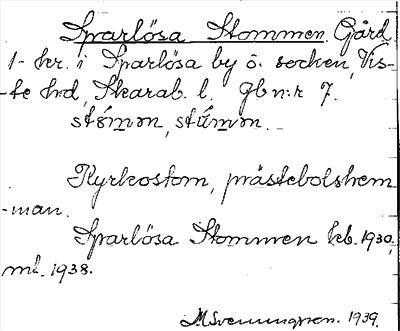 Sparlösa Stommen Gård
1- kr. i Sparlösa by ö. socken, Vis-
-te hrd, Skarab. l. Jb n:r 7.
stómmn, stúmmn.
Kyrkostom, prästebolshem
-man.
Sparlösa Stommen keb. 1930,
ml. 1938.
MSvenungson. 1939.